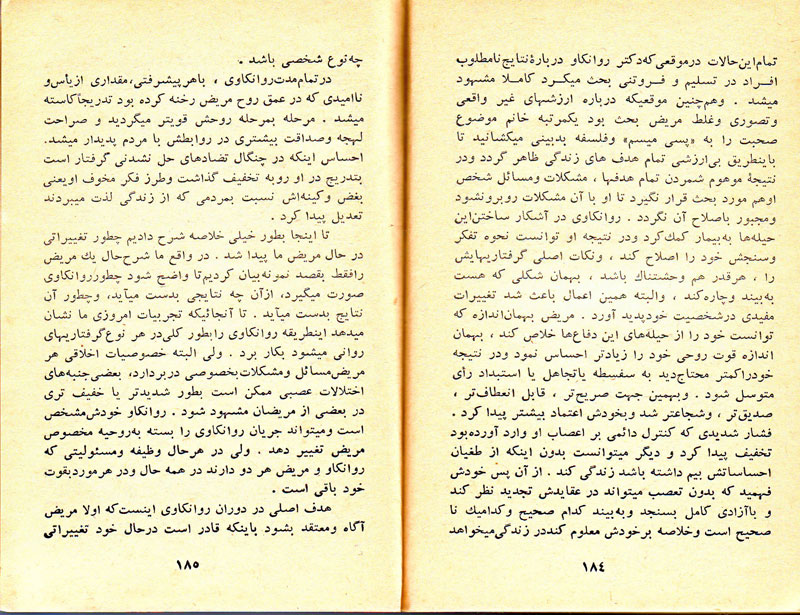 تمام این حالات درموقعی که دکتر روانکاو دربارهٔ نتایج نامطلوب
افراد در تسلیم و فروتنی بحث میکرد کاملا مشهود
میشد . وهم‌چنین موقعیکه درباره ارزشهای غیر واقعی
وتصوری وغلط مریض بحث بود یکمرتبه خانم موضوع
صحبت را به «پسی میسم» وفلسفه بدبینی میکشانید تا
باینطریق بی‌ارزشی تمام هدف های زندگی ظاهر گردد ودر
نتیجهٔ موهوم شمردن تمام هدفها ، مشکلات ومسائل شخص
اوهم مورد بحث قرار نگیرد تا او با آن مشکلات روبرونشود
ومجبور باصلاح آن نگردد . روانکاوی در آشکار ساختن‌این
حیله‌ها به‌بیمار کمك‌کرد ودر نتیجه او توانست نحوه تفکر
وسنجش خود را اصلاح کند ، ونکات اصلی گرفتاریهایش
را ، هرقدر هم وحشتناك باشد ، بهمان شکلی که هست
به‌بیند وچاره‌کند ، والبته همین اعمال باعث شد تغییرات
مفیدی درشخصیت خودپدید آورد . مریض بهمان‌اندازه که
توانست خود را از حیله‌های این دفاع‌ها خلاص کند ، بهمان
اندازه قوت روحی خود را زیادتر احساس نمود ودر نتیجه
خودراکمتر محتاج‌دید به سفسطه یاتجاهل یا استبداد رأی
متوسل شود . وبهمین جهت صریح‌تر ، قابل انعطاف‌تر ،
صدیق‌تر ، وشجاعتر شد وبخودش اعتماد بیشتر پیدا کرد .
فشار شدیدی که کنترل دائمی بر اعصاب او وارد آورده‌بود
تخفیف پیدا کرد و دیگر میتوانست بدون اینکه از طغیان
احساساتش بیم داشته باشد زندگی کند . از آن پس خودش
فهمید که بدون تعصب میتواند در عقایدش تجدید نظر کند
و باآزادی کامل بسنجد وبه‌بیند کدام صحیح وکدامیك نا
صحیح است وخلاصه برخودش معلوم کنددر زندگی‌میخواهد
۱۸٤
چه‌نوع شخصی باشد .
درتمام‌مدت‌روانکاوی ، باهرپیشرفتی،مقداری ازیأس‌و
ناامیدی که در عمق روح مریض رخنه کرده بود تدریجاکاسته
میشد . مرحله بمرحله روحش قویتر میگردید و صراحت
لهجه وصداقت بیشتری در روابطش با مردم پدیدار میشد.
احساس اینکه در چنگال تضادهای حل نشدنی گرفتار است
بتدریج در او روبه تخفیف گذاشت وطرز فکر مخوف اویعنی
بغض وکینه‌اش نسبت بمردمی که از زندگی لذت میبردند
تعدیل پیدا کرد .
تا اینجا بطور خیلی خلاصه شرح دادیم چطور تغییراتی
در حال مریض ما پیدا شد . در واقع ما شرح‌حال یك مریض
رافقط بقصد نمونه‌بیان کردیم‌تا واضح شود چطورروانکاوی
صورت میگیرد، ازآن چه نتایجی بدست میآید، وچطور آن
نتایج بدست میآید . تا آنجائیکه تجربیات امروزی ما نشان
میدهد اینطریقه روانکاوی رابطور کلی‌در هر نوع‌گرفتاریهای
روانی میشود بکار برد . ولی البته خصوصیات اخلاقی هر
مریض‌مسائل ومشکلات‌بخصوصی دربردارد، بعضی‌جنبه‌های
اختلالات عصبی ممکن است بطور شدیدتر یا خفیف تری
در بعضی از مریضان مشهود شود . روانکاو خودش‌مشخص
است ومیتواند جریان روانکاوی را بسته به‌روحیه مخصوص
مریض تغییر دهد . ولی در هرحال وظیفه ومسئولیتی که
روانکاو و مریض هر دو دارند در همه حال ودر هرموردبقوت
خود باقی است .
هدف اصلی در دوران روانکاوی اینست‌که اولا مریض
آگاه ومعتقد بشود باینکه قادر است درحال خود تغییراتی
۱۸۵